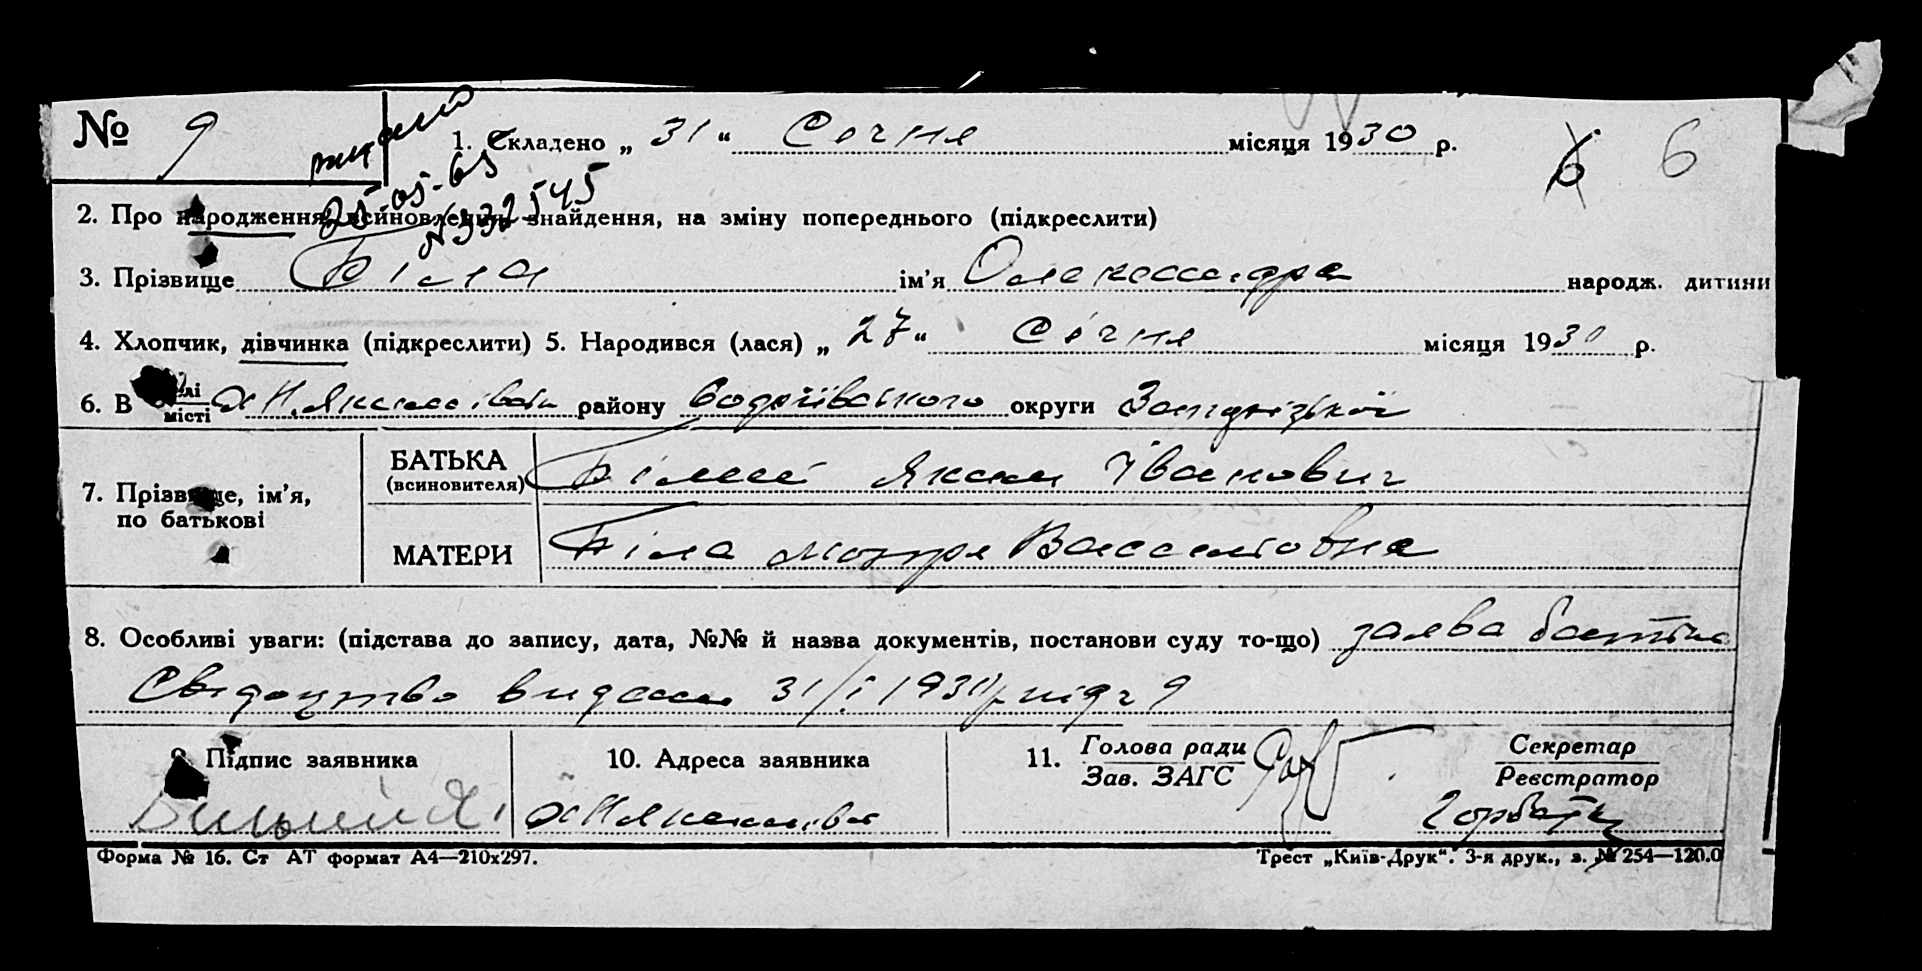 № 9
1. Складено „ 31 “ Січня місяця 1930 р. 6 6
25-05-65
N 332545
2. Про народження, всиновлення, знайдення, на зміну попереднього (підкреслити)
3. Прізвище Біла ім’я Олександра народж. дитини
4. Хлопчик, дівчинка (підкреслити) 5. Народився (лася) „ 27 “ Січня місяця 1930 р.
6. В селі місті Якимівки району округи Запорізької
7. Прізвище, ім’я, по батькові
БАТЬКА (всиновителя) Білий Яким Іванович
МАТЕРИ Біла Мотря Василовна
8. Особливі уваги: (підстава до запису, дата, №№ й назва документів, постанови суду то-що) заява батька
Свідоцтво видано 31/I 1930 р. під ч 9
9. Підпис заявника 10. Адреса заявника 11. Голова ради Зав. ЗАГС Секретар Реєстратор
Билый Я. І Якимівка
Форма № 16. Ст АТ формат А4—210х297. Трест „Київ-Друк“. 3-я друк., з. № 254—120.0